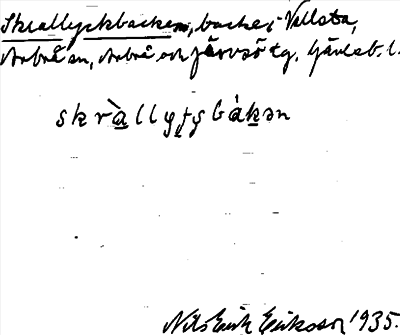 Skrallyckbacken, backe i Vallsta,
Arbrå sn, Arbrå och Järvsö tg. Gävleb. l.
skràllyṭṣbákən
Nils Erik Eriksson 1935.